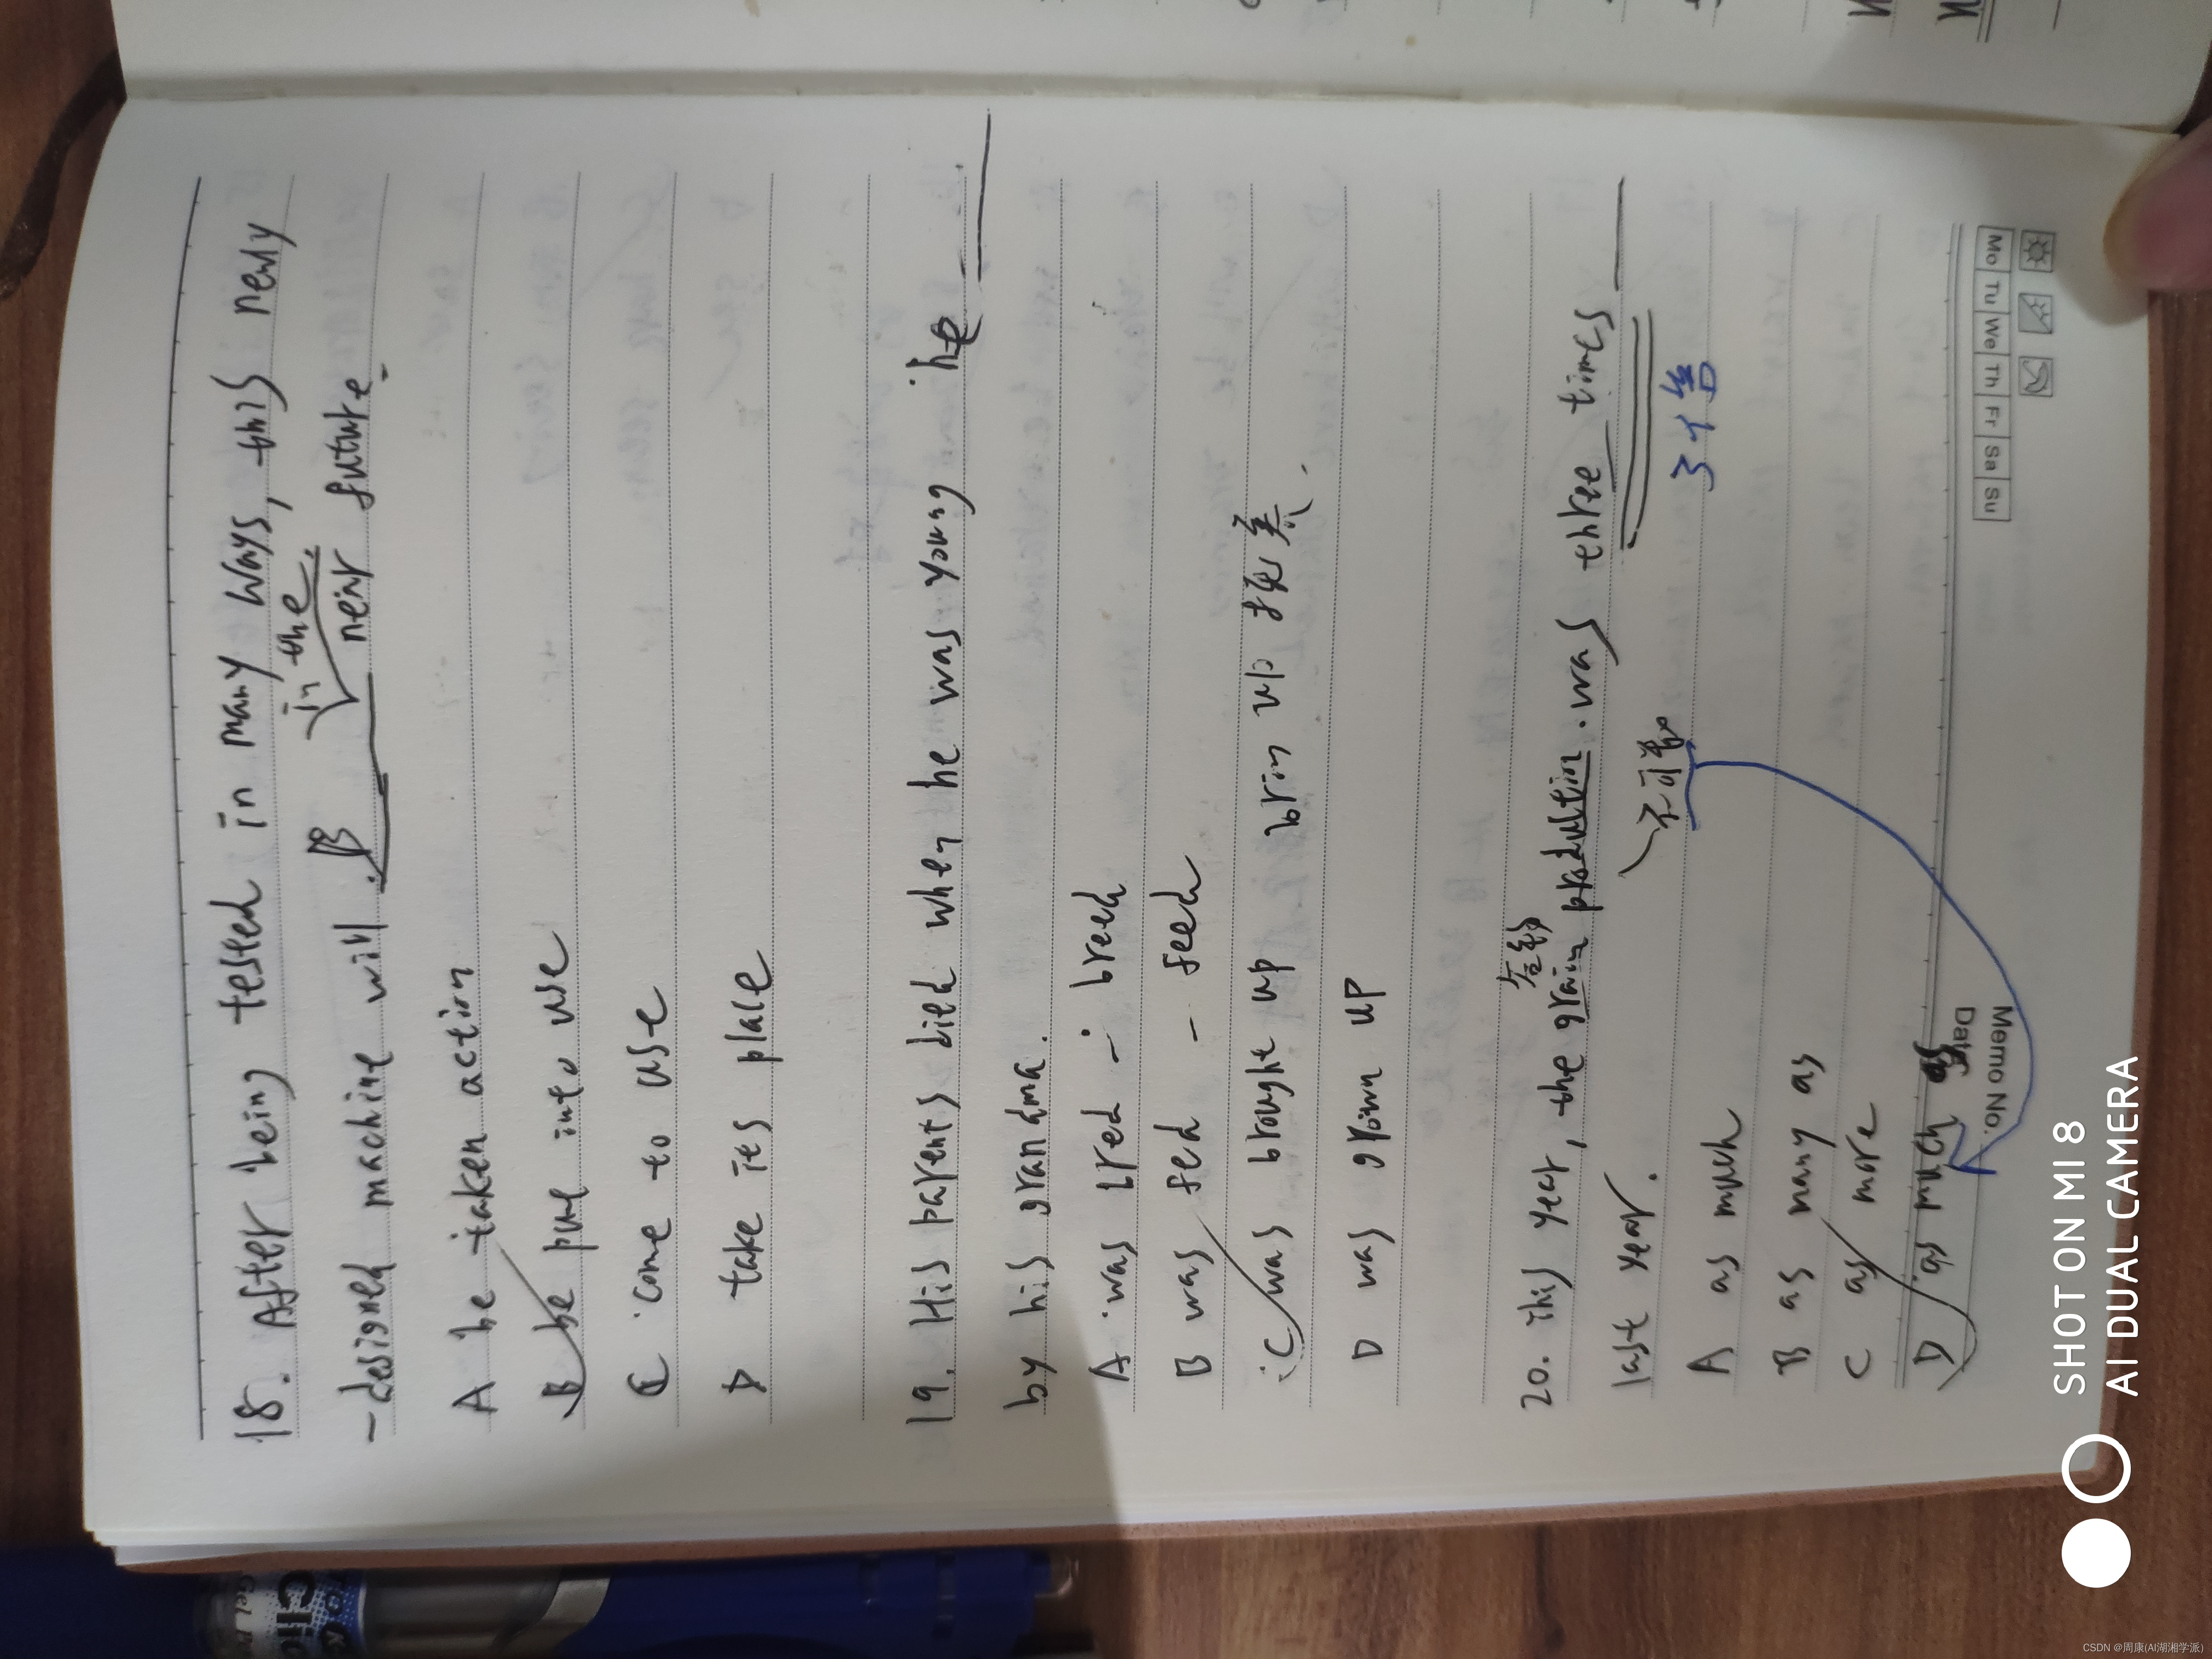 18. After being tested in many ways, this newly
in the
-designed machine will B near future.
A be taken action
B be put into use
C come to use
D take its place
19. His parents died when he was young he
by his grandma.
A was bred - breed
B was fed - feed
C was brought up brin up 抚养.
D was grown up
谷物
20. this year, the grain prodution was three times
不可数 3倍
last year.
A as much
B as many as
C as more
D as much as
Memo No.
Date
Mo Tu We Th Fr Sa Su
SHOT ON MI 8
AI DUAL CAMERA
CSDN @周康(AI湖湘学派)